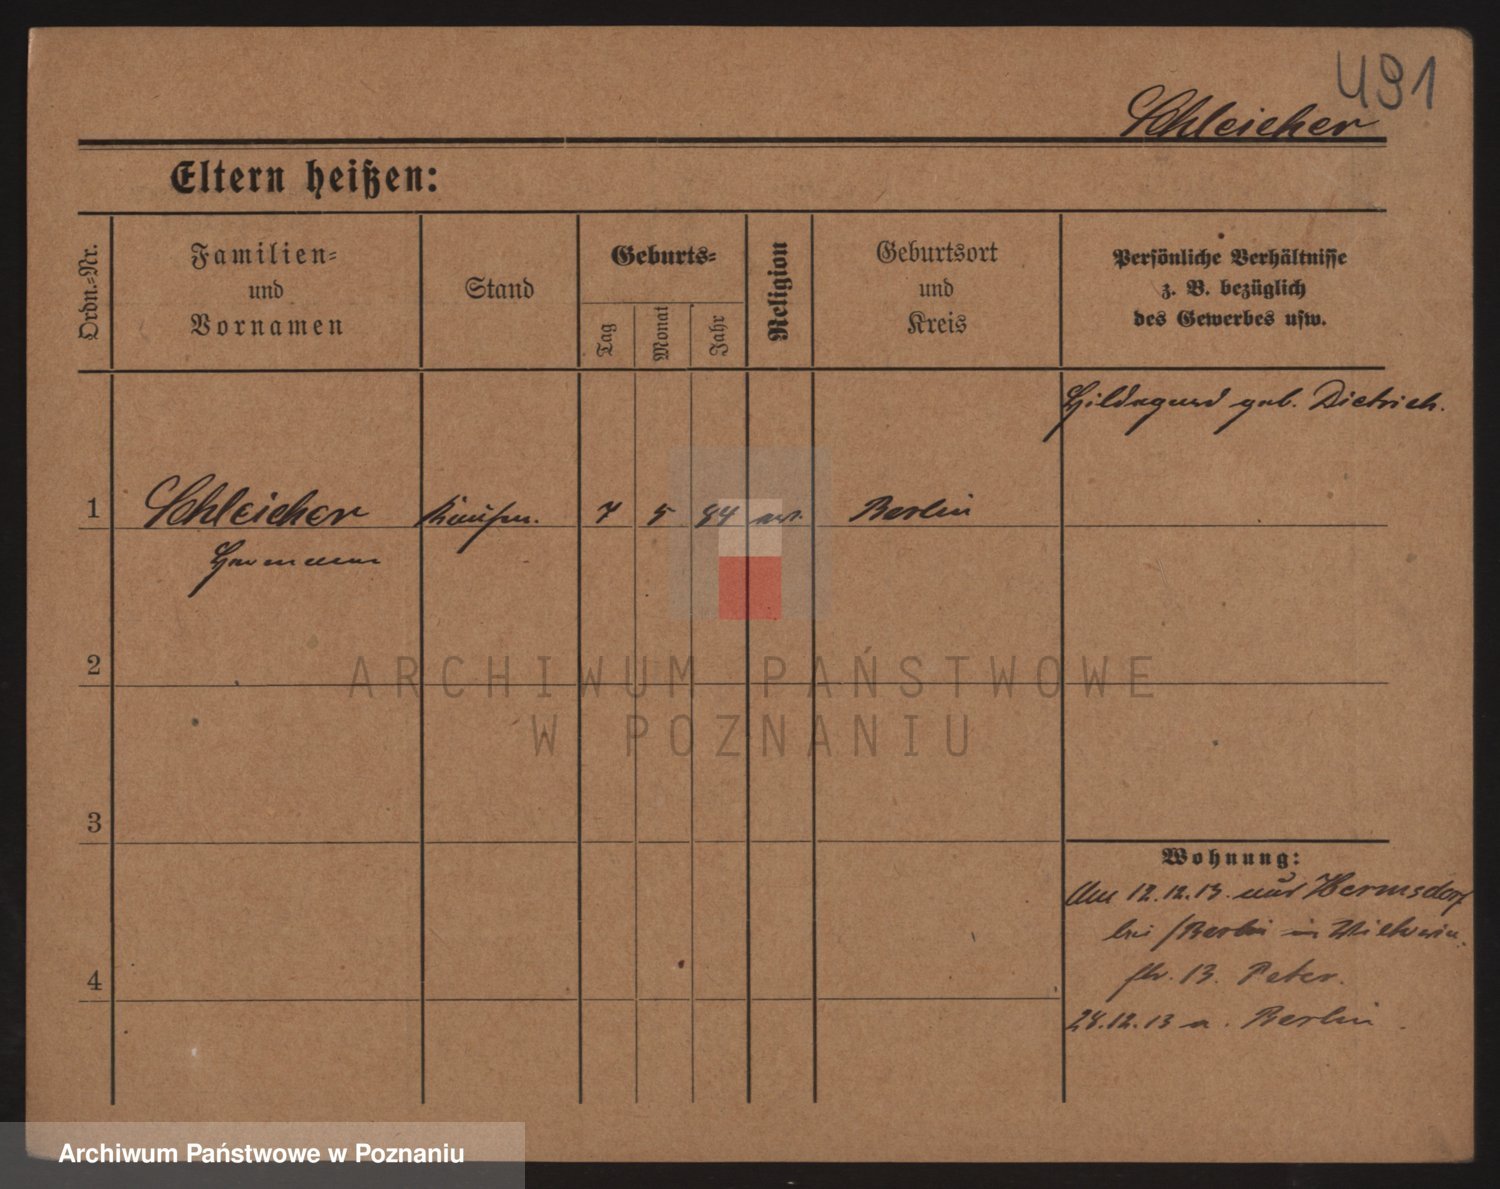 491
Schleicher
Eltern heißen:
Ordn.-Nr.
Familien-
und
Vornamen
Stand
Geburts-
Tag
Monat
Jahr
Religion
Geburtsort
und
Kreis
Persönliche Verhältnisse
z. B. bezüglich
des Gewerbes usw.
Hildegard geb. Dietrich.
1 Schleicher Kaufm. 7 5 84 Berlin
Hermann
2
ARCHIWUM PAŃSTWOWE
W POZNANIU
3
Wohnung:
Am 12.12.13. aus Hermsdorf
bei /Berlin in
str. 13. Peter.
4
28.12.13 n. Berlin
Archiwum Państwowe w Poznaniu